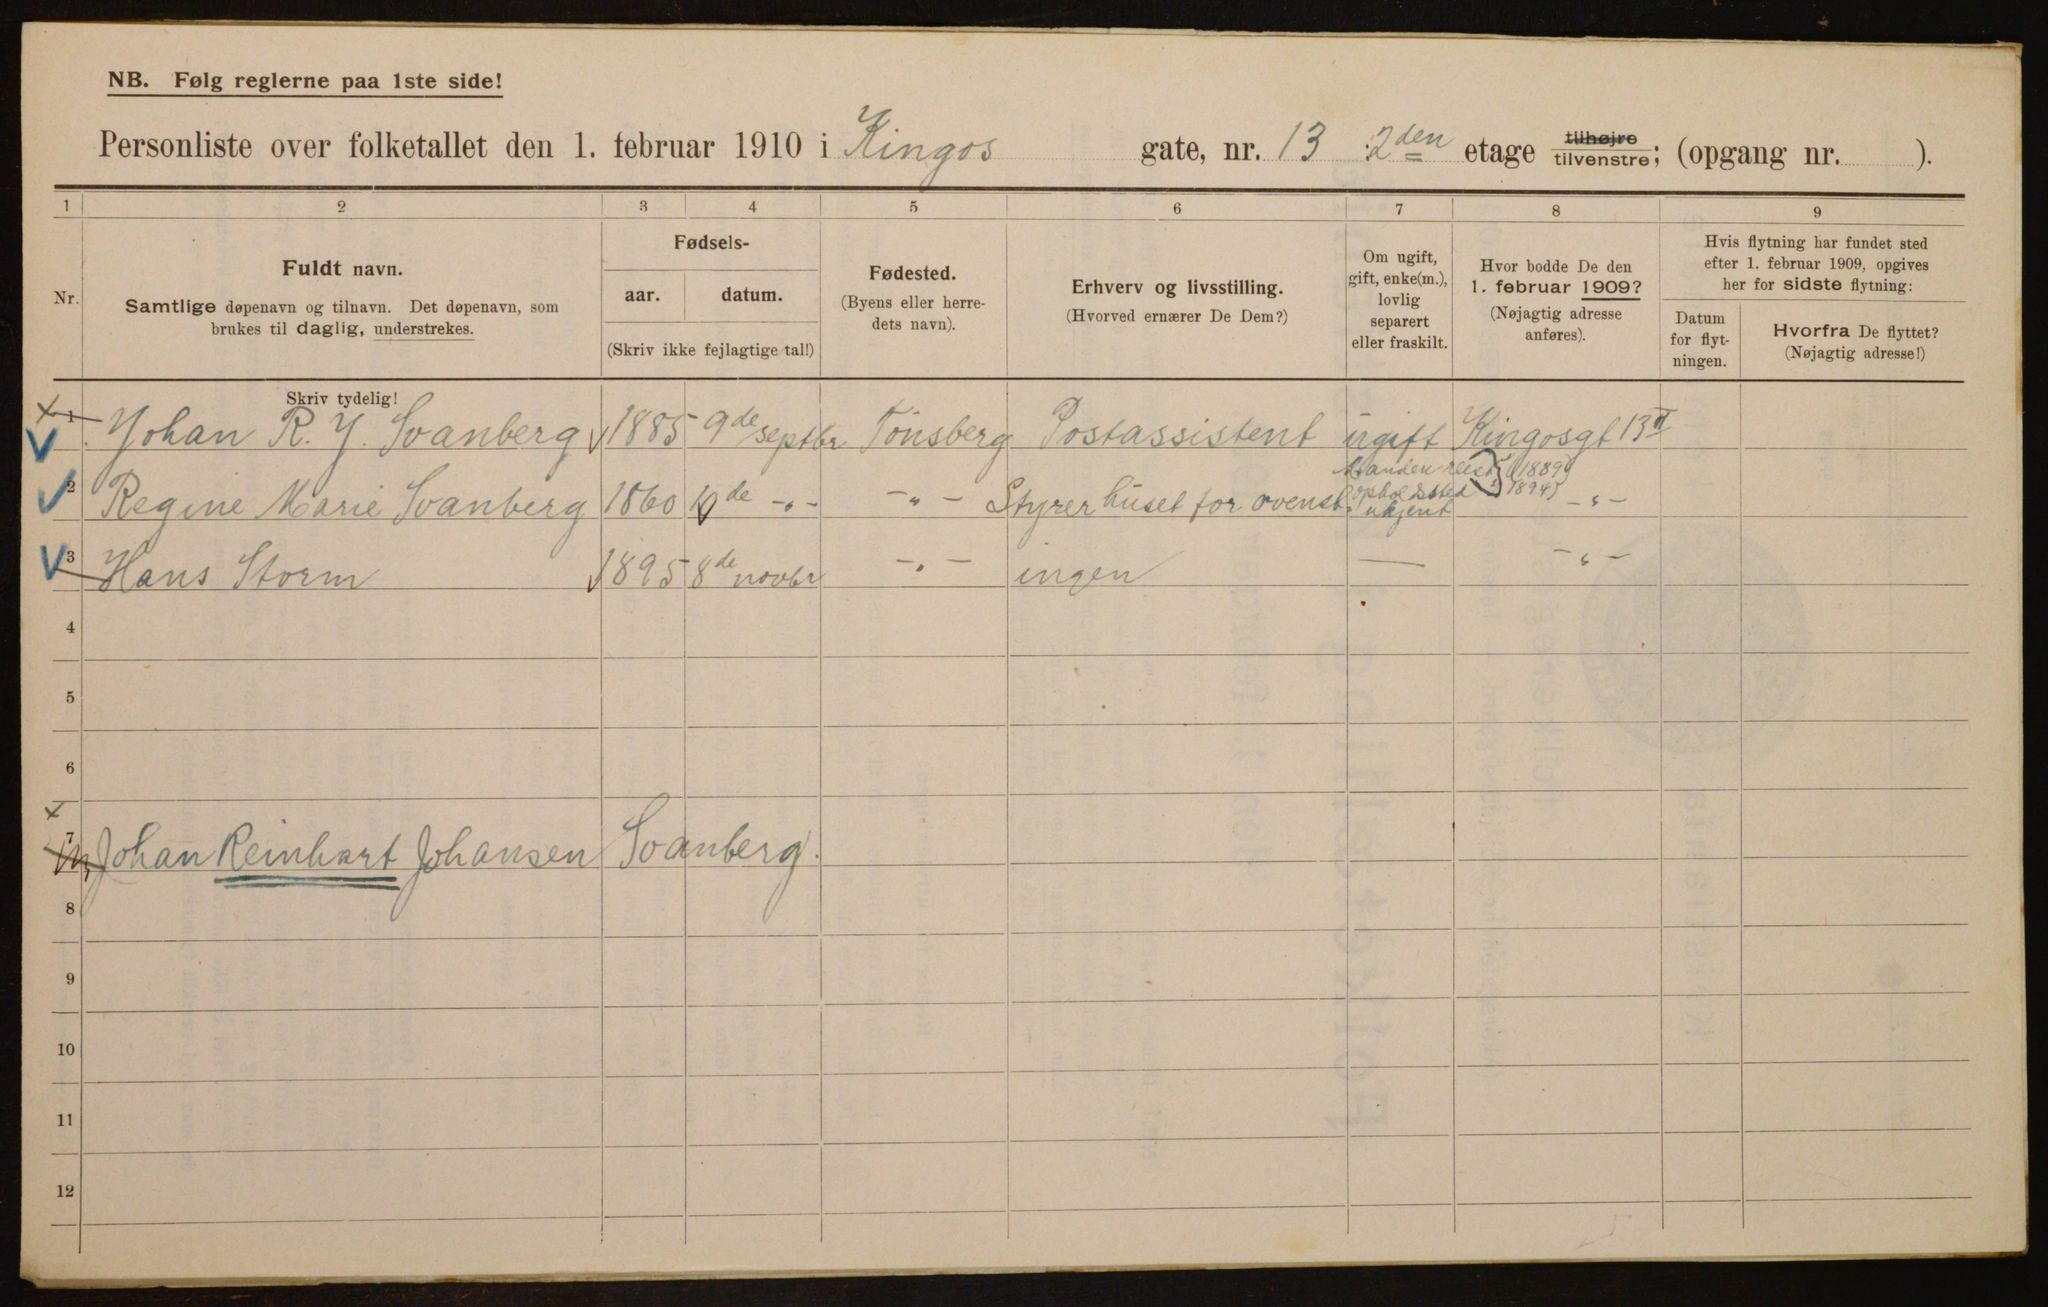 NB. Følg reglerne paa 1ste side!
Personliste over folketallet den 1. februar 1910 i Kingos gate, nr. 13 2den etage tilhøjre tilvenstre; (opgang nr. ).
1 2 3 4 5 6 7 8 9
Nr.
Fuldt navn.
Samtlige døpenavn og tilnavn. Det døpenavn, som
brukes til daglig, understrekes.
Fødsels-
aar. datum.
(Skriv ikke fejlagtige tal!)
Fødested.
(Byens eller herre-
dets navn).
Erhverv og livsstilling.
(Hvorved ernærer De Dem?)
Om ugift,
gift, enke(m.),
lovlig
separert
eller fraskilt.
Hvor bodde De den
1. februar 1909?
(Nøjagtig adresse
anføres).
Hvis flytning har fundet sted
efter 1. februar 1909, opgives
her for sidste flytning:
Datum
for flyt-
ningen.
Hvorfra De flyttet?
(Nøjagtig adresse!)
Skriv tydelig!
1 Johan R. J. Svanberg 1885 9de septbr Tönsberg Postassistent ugift Kingosgt 13 II
Manden reist (1889)
2 Regine Marie Svanberg 1860 10de -"- -"- Styrer huset for ovenst. opholdssted 1894) -"-
ukjent
3 Hans Storm 1895 8de novbr -"- ingen — -"-
4
5
6
7 Johan Reinhart Johansen Svanberg.
8
9
10
11
12